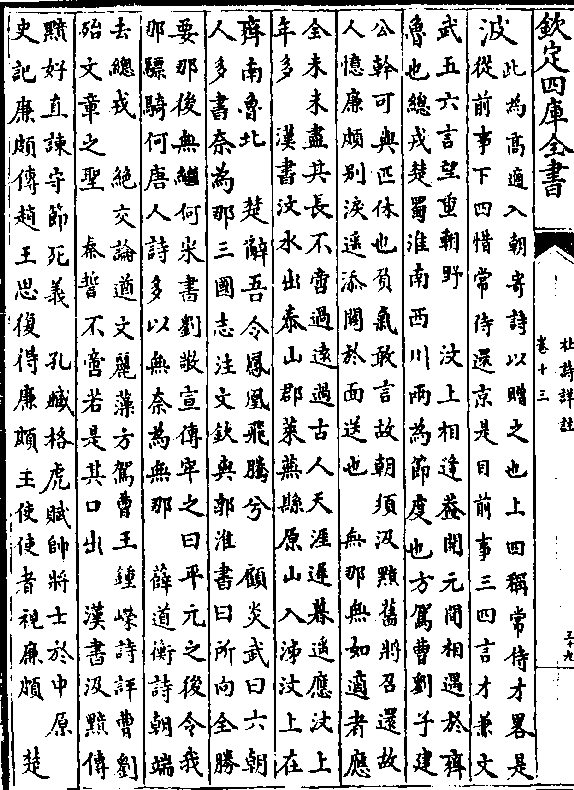 欽定四庫全書
杜詩詳註
卷十三
三十九
波
此為髙適入朝寄詩以贈之也上四稱常侍才畧是
從前事下四惜常侍還京是目前事三四言才兼文
武五六言望重朝野　汶上相逢葢開元間相遇於齊
魯也總戎楚蜀淮南西川兩為節度也方駕曹劉子建
公幹可與匹休也負氣敢言故朝須汲黯舊將召還故
人憶廉頗别淚遥添闗於面送也　無那無如適者應
全未未盡其長不啻過遠過古人天涯遲暮遥應汶上
年多　漢書汶水出泰山郡萊蕪縣原山入泲汶上在
齊南魯北　楚辭吾令鳯凰飛騰兮　顧炎武曰六朝
人多書奈為那三國志注文欽與郭淮書曰所向全勝
要那後無繼何宋書劉敬宣傳牢之曰平元之後令我
那驃騎何唐人詩多以無奈為無那　薛道衡詩朝端
去總戎　絶交論遒文麗藻方駕曹王鍾嶸詩評曹劉
殆文章之聖　秦誓不啻若是其口出　漢書汲黯傳
黯好直諫守節死義　孔臧格虎賦帥將士於中原
史記廉頗傳趙王思復得廉頗王使使者視廉頗　楚